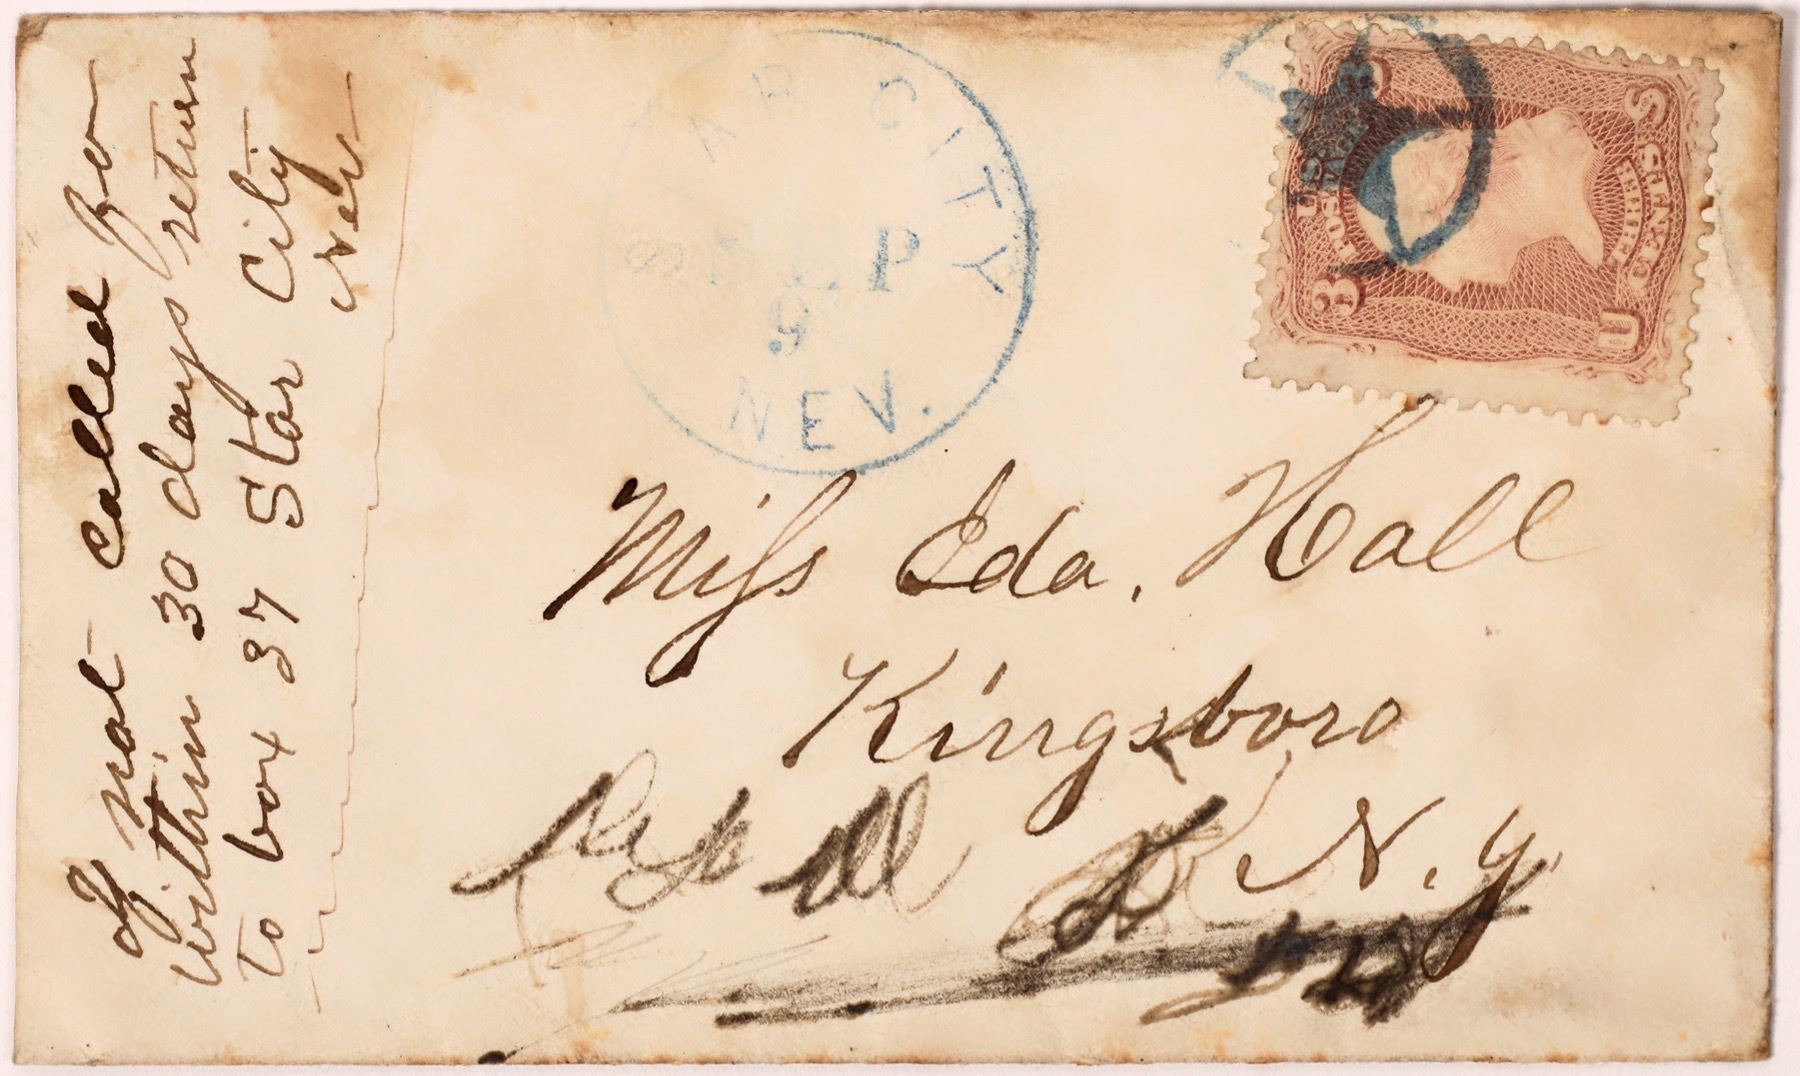 If not called for
within 30 days return
To box 37 Star City
Nev
STAR CITY
SEP
9
NEV.
U.S. POSTAGE
3 3
THREE CENTS
U S
Miss Ida. Hall
Kingsboro
N.Y.